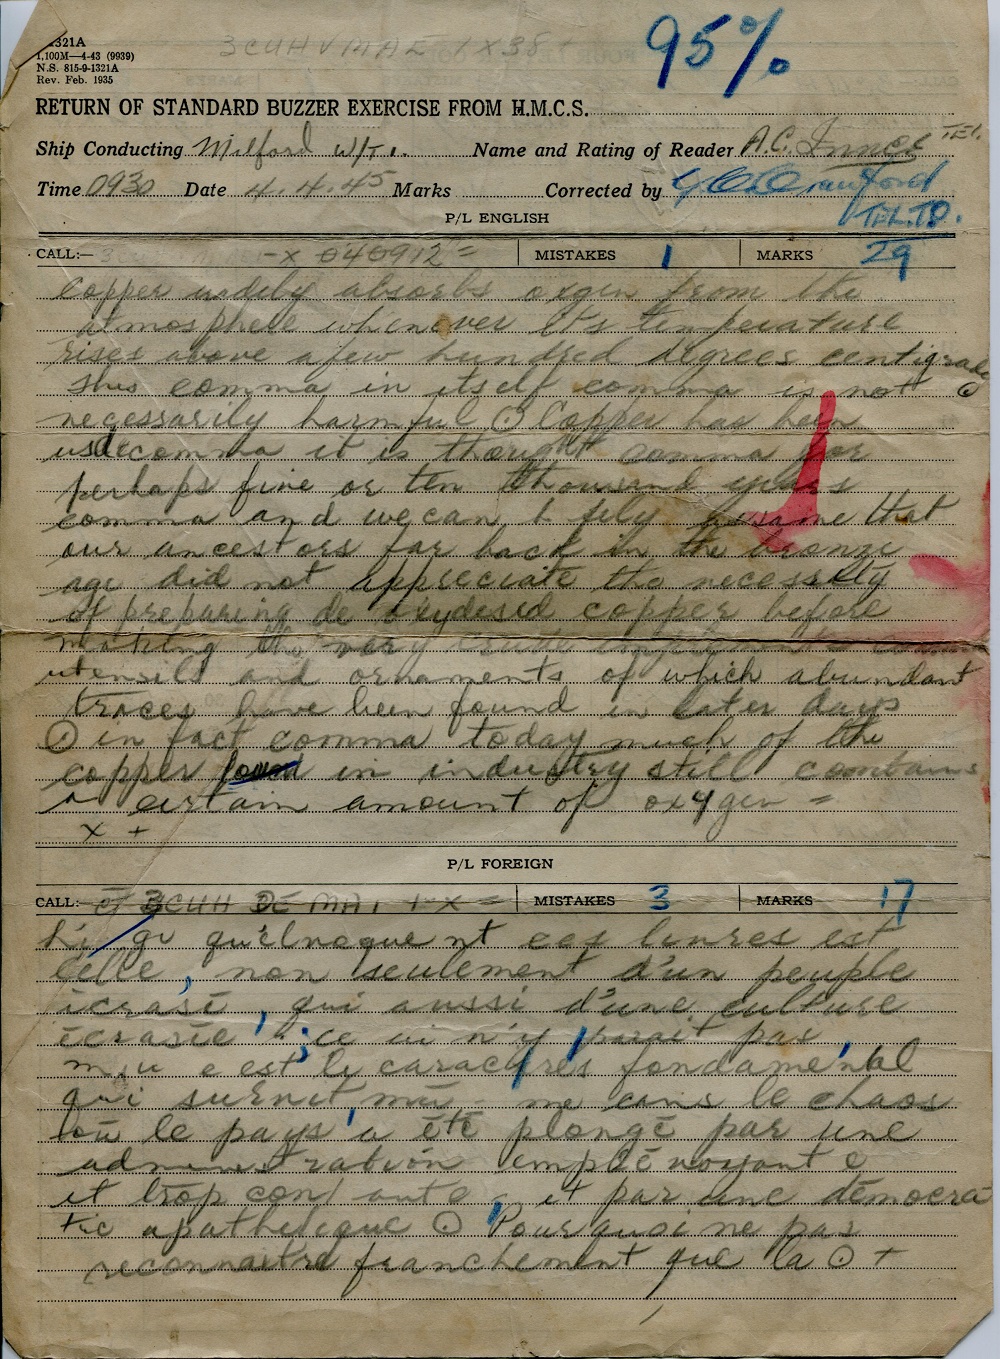 1321A
3CUHVMAE 1X38+
1,100M—4-43 (9939)
N.S. 815-9-1321A
Rev. Feb. 1935
95%
RETURN OF STANDARD BUZZER EXERCISE FROM H.M.C.S.
Ship Conducting Milford W/T. Name and Rating of Reader A.C. Innes TEL.
Time 0930 Date 4.4.45 Marks Corrected by Crawford
TEL.TO.
P/L ENGLISH
CALL:— -X 040912 = MISTAKES 1 MARKS 29
Copper widely absorbs oxgen from the
atmosphere whenever its temperature
rises above a few hundred degrees centigrade
This comma in itself comma is not ⊙
necessarily harmful ⊙ Copper has been
used comma it is thought comma for
perhaps five or ten thousand years
comma and we can that
our ancestors far back in the bronze
age did not appreciate the necessity
of preparing de oxydesed copper before
making the very crude
utensils and ornaments of which abundant
traces have been found in later days
⊙ in fact comma today much of the
copper found in industry still contains
a certain amount of oxygen =
x +
P/L FOREIGN
CALL: 3CUHH DE MAI 1-X = MISTAKES 3 MARKS 17
nt ces livres est
celle, non seulement d'un peuple
ecrasé, qui aussi d'une culture
écrasée, ce n'y parait pas
est le fondamental
qui me le chaos
ou le pays a été plongé par une
administration
et trop et par une démocra
tic apathetique ⊙ Pourquoi ne pas
reconnaitre franchement que la ⊙ +